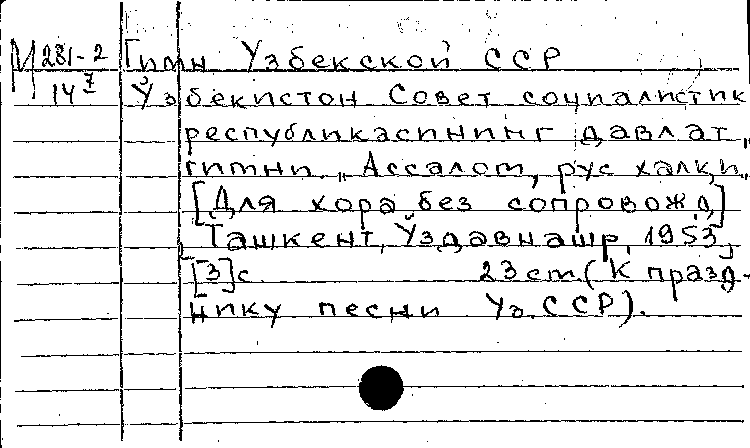 М 281-2 Гимн Узбекской ССР
14 7 Ўзбекистон Совет социалистик
республикасининг давлат
гимни. „Ассалом, рус халқи„
[Для хора без сопровожд]
Ташкент, Ўздавнашр, 1953,
[3]с 23 cm. (К празд-
нику песни Уз. ССР).